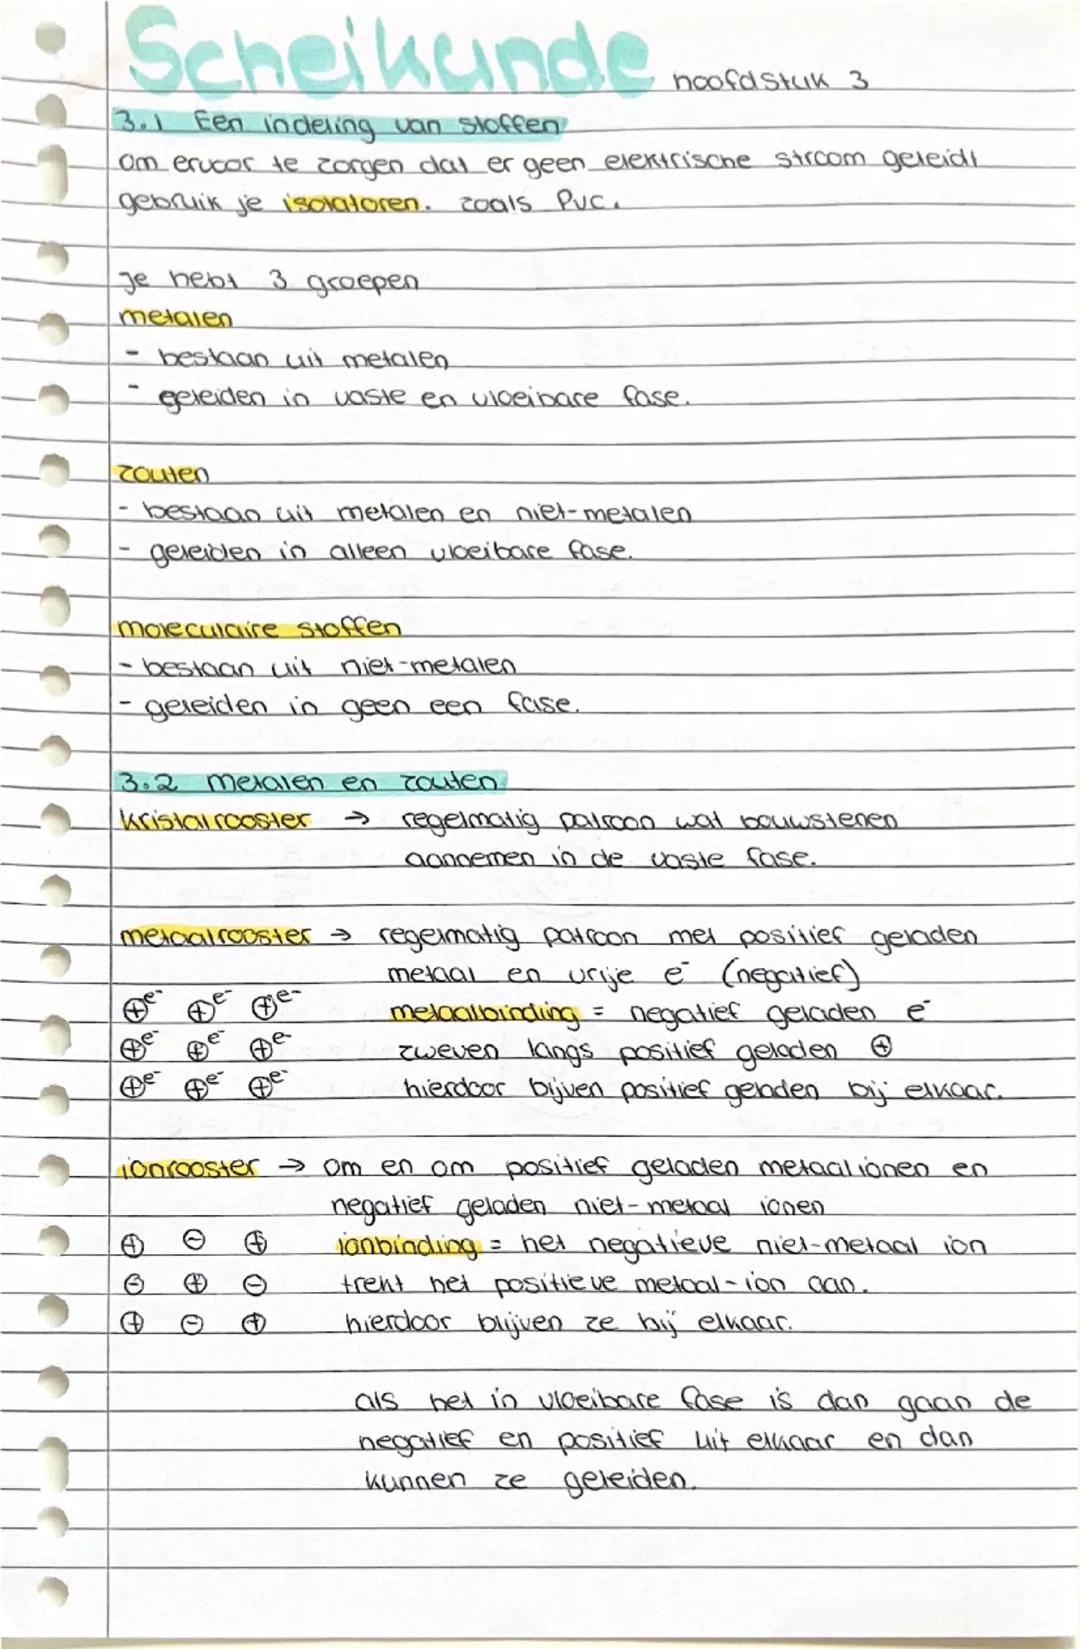 Scheikunde hoofdstuk 3
3.1 Een indeling van stoffen
Om ervoor te zorgen dat er geen elektrische stroom geleidt
gebruik je isolatoren. zoals PVC.
Je hebt 3 groepen
metalen
- bestaan uit metalen
- geleiden in vaste en vloeibare fase.
zouten
- bestaan uit metalen en niet-metalen
- geleiden in alleen vloeibare fase.
moleculaire stoffen
- bestaan uit niet-metalen
- geleiden in geen een fase.
3.2 metalen en zouten
kristalrooster → regelmatig patroon wat bouwstenen
aannemen in de vaste fase.
metaalrooster → regelmatig patroon met positief geladen
metaal en vrije e⁻ (negatief)
⊕e⁻ ⊕e⁻ ⊕e⁻ metaalbinding = negatief geladen e⁻
⊕e⁻ ⊕e⁻ ⊕e⁻ zweven langs positief geladen ⊕
⊕e⁻ ⊕e⁻ ⊕e⁻ hierdoor bijven positief geladen bij elkaar.
ionrooster → om en om positief geladen metaalionen en
negatief geladen niet-metaal ionen
⊕ ⊖ ⊕ ionbinding = het negatieve niet-metaal ion
⊖ ⊕ ⊖ trekt het positieve metaal-ion aan.
⊕ ⊖ ⊕ hierdoor blijven ze bij elkaar.
als het in vloeibare fase is dan gaan de
negatief en positief uit elkaar en dan
kunnen ze geleiden.